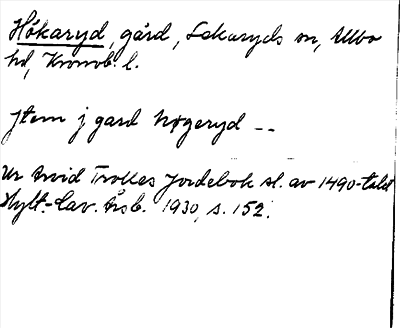 Hökaryd, gård, Sekaryds sn, Allbo
hd, Kronob. l.
Jtem j gard høgeryd --
Ur Arvid Trolles Jordebok sl. av 1490-talet
Hylt.-Cav. Årsb. 1930, s. 152.